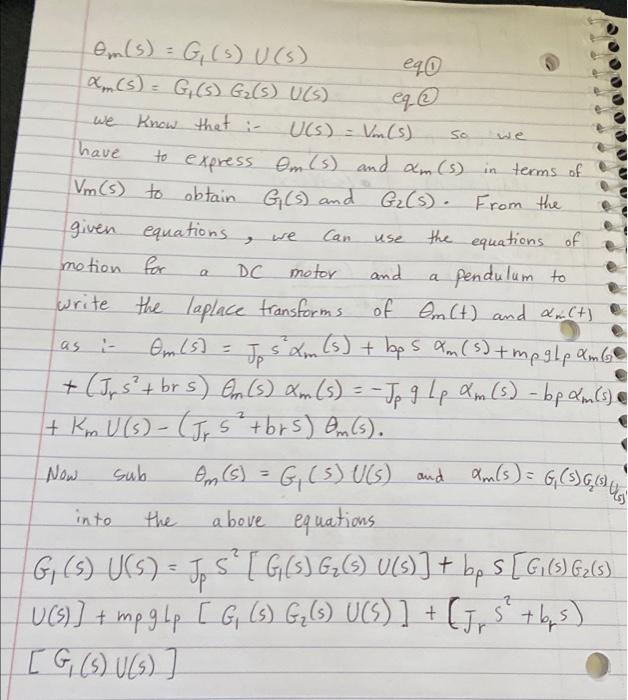 θm(s) = G₁(s) U(s) eq①
αm(s) = G₁(s) G₂(s) U(s) eq②
we know that :- U(s) = Vm(s) so we
have to express θm(s) and αm(s) in terms of
Vm(s) to obtain G₁(s) and G₂(s). From the
given equations, we can use the equations of
motion for a DC motor and a pendulum to
write the laplace transforms of θm(t) and αm(t)
as :- θm(s) = Jp s² αm(s) + bp s αm(s) + mp g Lp αm(s)
+ (Jr s² + br s) θm(s) αm(s) = -Jp g Lp αm(s) - bp αm(s)
+ Km U(s) - (Jr s² + br s) θm(s).
Now sub θm(s) = G₁(s) U(s) and αm(s) = G₁(s) G₂(s) U(s)
into the above equations
G₁(s) U(s) = Jp s² [ G₁(s) G₂(s) U(s)] + bp s [G₁(s) G₂(s)
U(s)] + mp g Lp [ G₁(s) G₂(s) U(s) ] + (Jr s² + br s)
[ G₁(s) U(s) ]